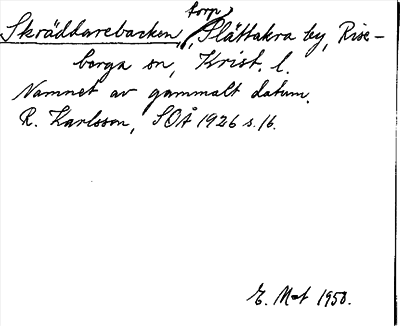 Skräddarebacken, torp, Slättakra by, Rise-
berga sn, Krist. l.
Namnet av gammalt datum.
R. Karlsson, SOÅ 1926 s. 16.
E. M-t 1950.